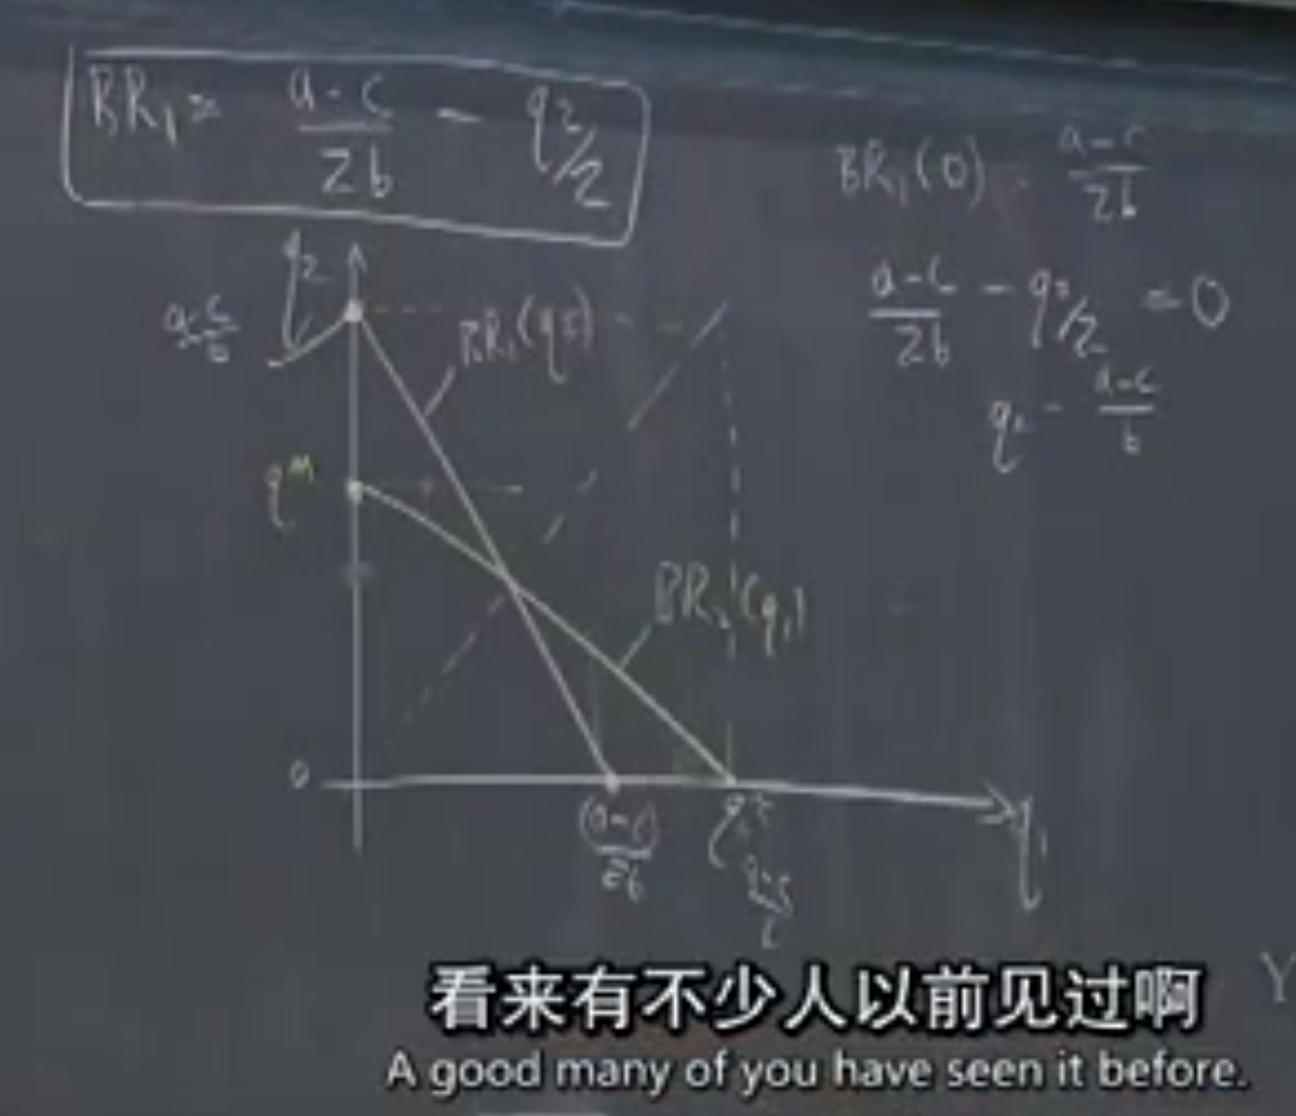 BR₁ = a-c/2b - q₂/2
BR₁(0) = a-c/2b
a-c/2b - q₂/2 = 0
q₂ = a-c/b
q₂
a-c/b
BR₁(q₂)
qᴹ
BR₂(q₁)
0
(a-c)/2b
a-c
q₁
看来有不少人以前见过啊
Y
A good many of you have seen it before.